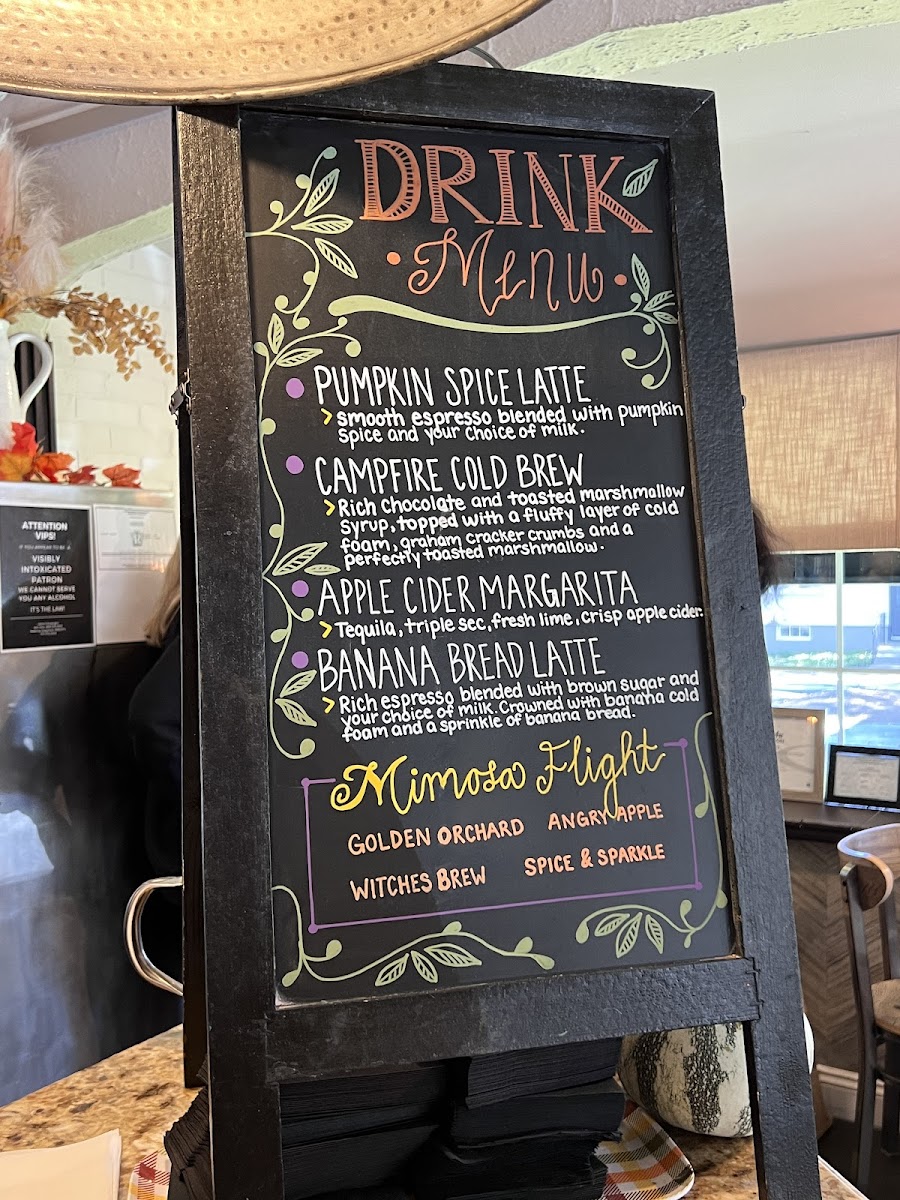 DRINK
Menu
PUMPKIN SPICE LATTE
> smooth espresso blended with pumpkin
spice and your choice of milk.
CAMPFIRE COLD BREW
> Rich chocolate and toasted marshmallow
syrup, topped with a fluffy layer of cold
foam, graham cracker crumbs and a
perfectly toasted marshmallow.
APPLE CIDER MARGARITA
> Tequila, triple sec, fresh lime, crisp apple cider.
BANANA BREAD LATTE
> Rich espresso blended with brown sugar and
your choice of milk. Crowned with banana cold
foam and a sprinkle of banana bread.
Mimosa Flight
GOLDEN ORCHARD ANGRY APPLE
WITCHES BREW SPICE & SPARKLE
ATTENTION
VIPS!
IF YOU APPEAR TO BE A
VISIBLY
INTOXICATED
PATRON
WE CANNOT SERVE
YOU ANY ALCOHOL
IT'S THE LAW!